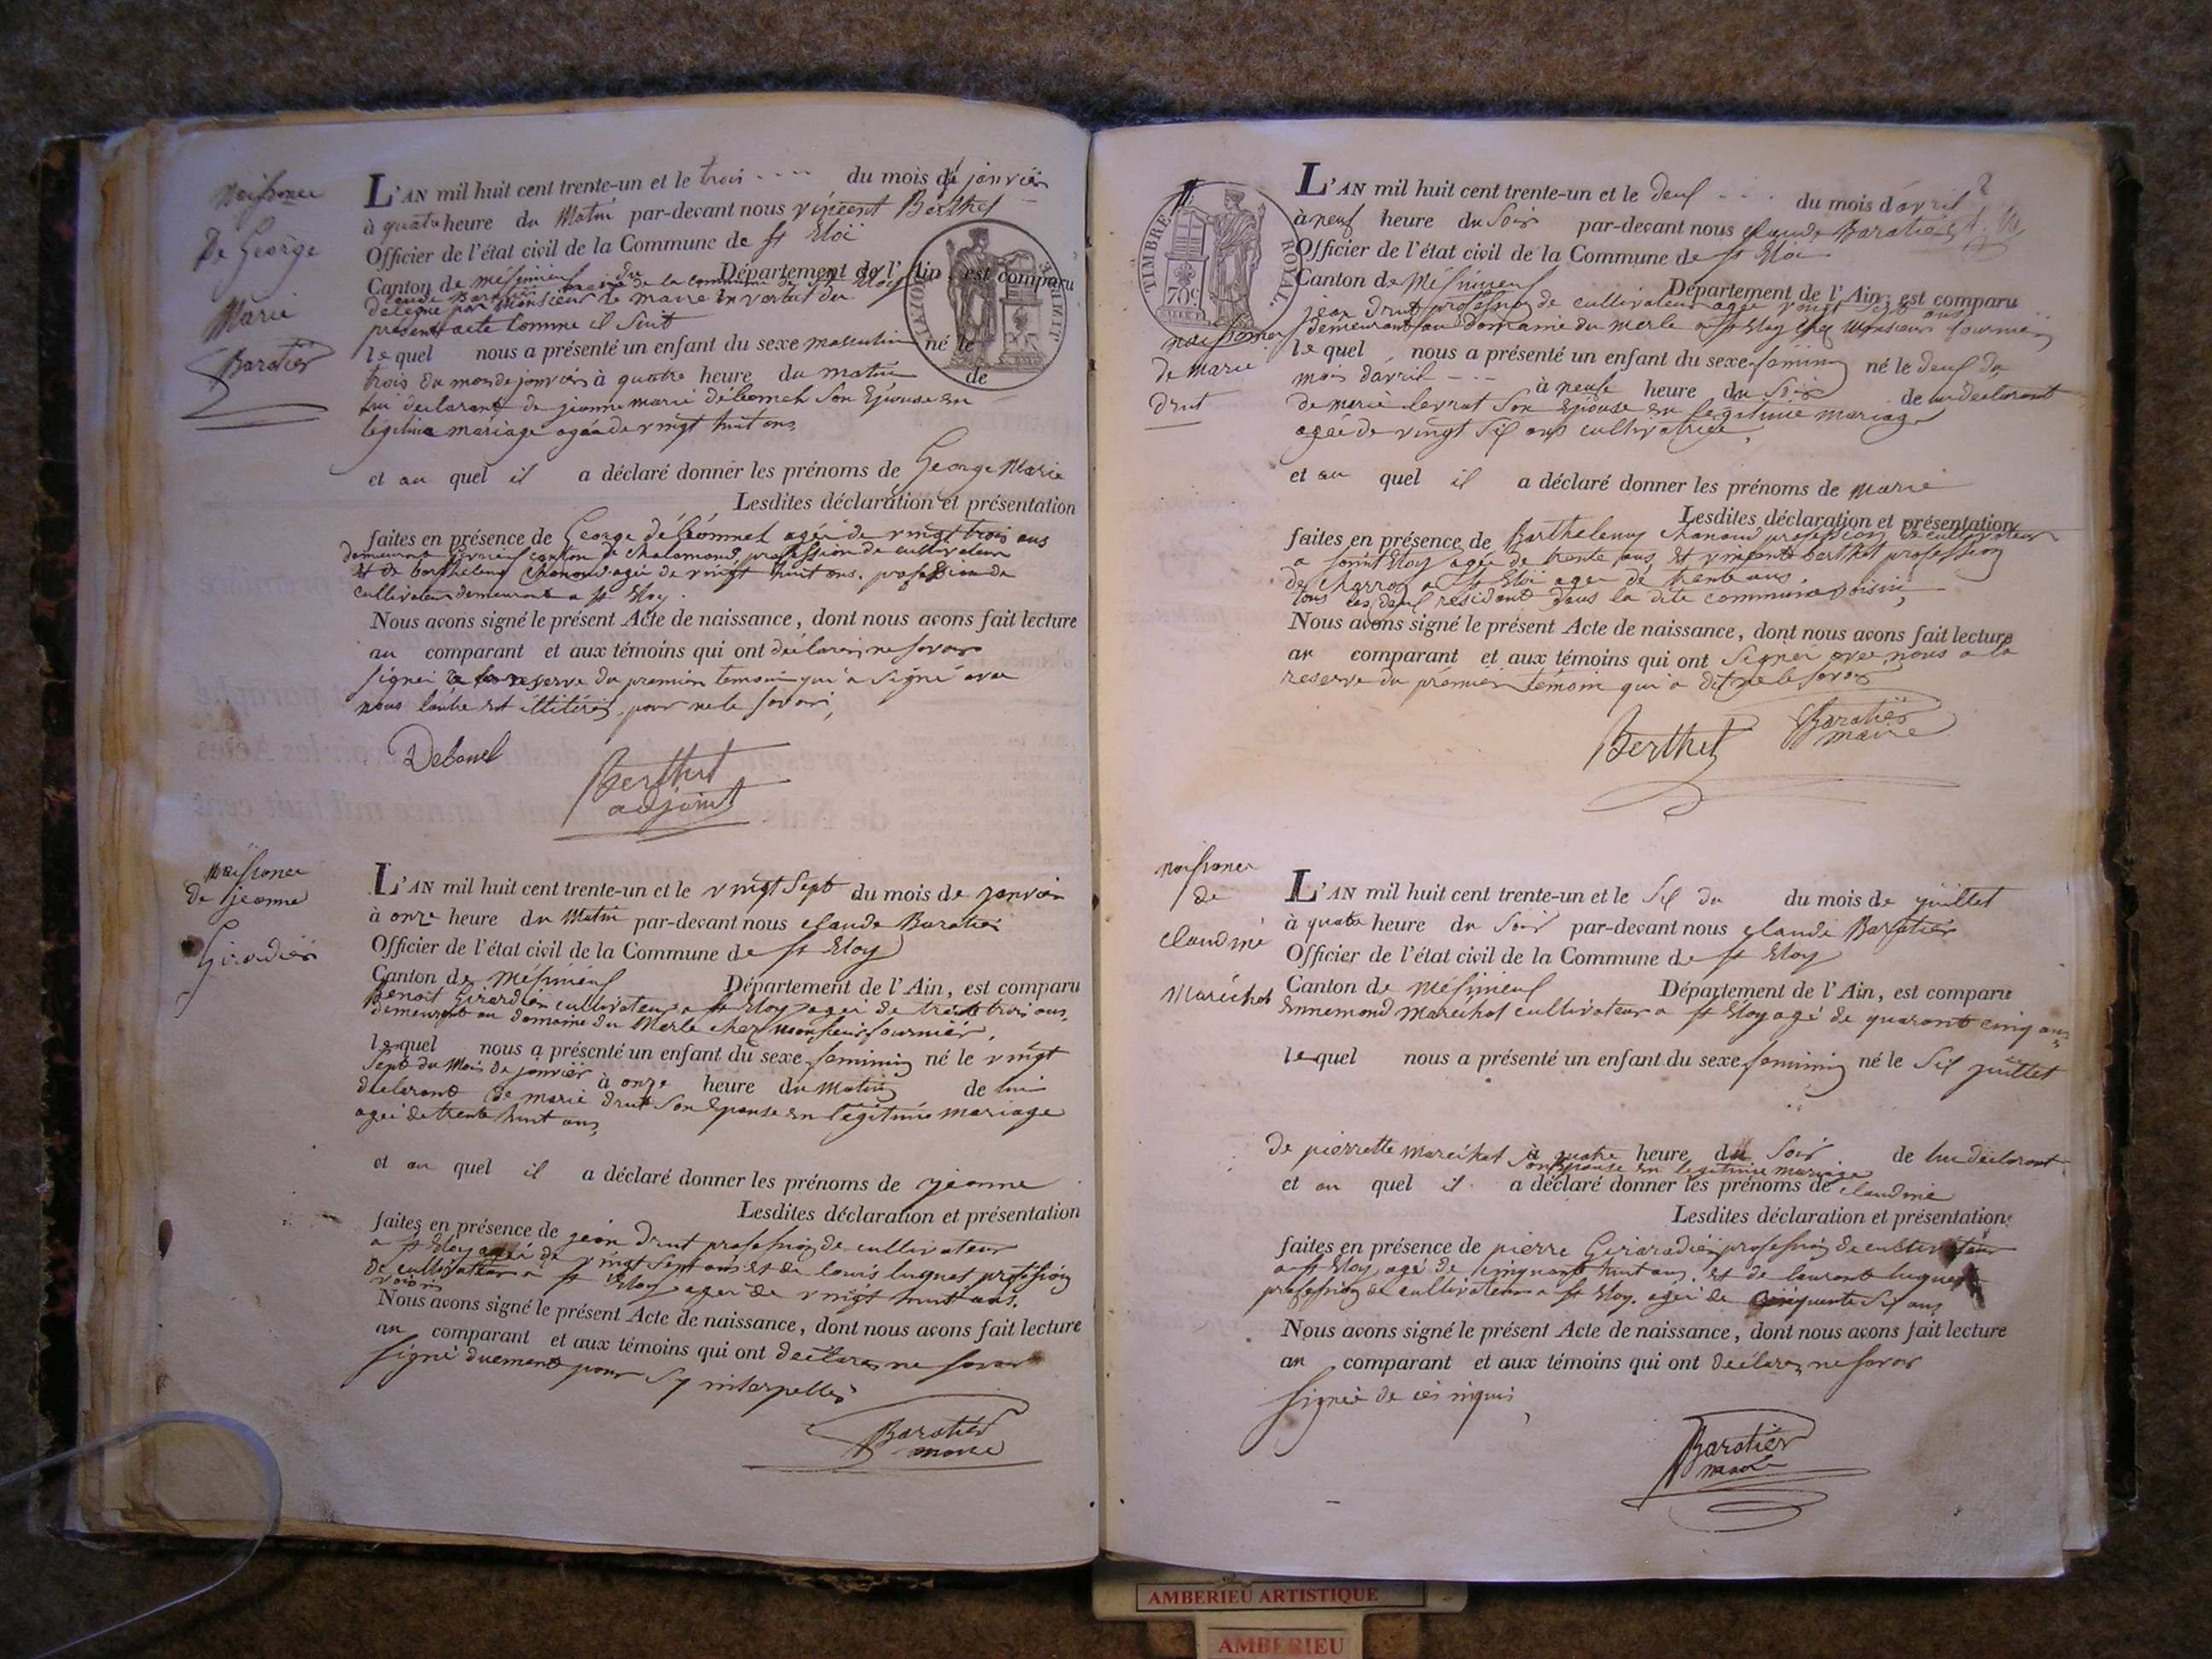 naissance
De George
Marie
Baratier
L'AN mil huit cent trente-un et le trois - - - - du mois de janvier
à quatre heure du Matin par-devant nous vincent Berthet
Officier de l'état civil de la Commune de St Eloi
Canton de Méximieux Département de l'Ain est comparu
Claude Baratier maire de la commune de St Eloy
délégué par Monsieur le maire en vertu du
présent acte comme il suit
lequel nous a présenté un enfant du sexe masculin né le
trois du mois de janvier à quatre heure du matin de
lui déclarant de jeanne marie son Epouse en
légitime mariage agée de vingt huit ans
et au quel il a déclaré donner les prénoms de George Marie
Lesdites déclaration et présentation
faites en présence de George agée de vingt trois ans
demeurant canton de Chalamond profession de cultivateur
et de barthelemy Chanoud agée de vingt huit ans. profession de
cultivateur demeurant a St Eloy.
Nous avons signé le présent Acte de naissance, dont nous avons fait lecture
au comparant et aux témoins qui ont déclarer ne savoir
signer a la reserve du premier temoin qui a signé avec
nous l'autre est illitéré pour ne le savoir,
Berthet
adjoint
naissance
De jeanne
Girardier
L'AN mil huit cent trente-un et le vingt Sept du mois de janvier
à onze heure du Matin par-devant nous claude Baratier
Officier de l'état civil de la Commune de St Eloy
Canton de Méximieux Département de l'Ain, est comparu
benoit Girardier cultivateur a St Eloy agée de trente trois ans,
demeurant au domaine du Merle chez monsieur fournier,
lequel nous a présenté un enfant du sexe feminin né le vingt
Sept du Mois de janvier à onze heure du Matin de lui
déclarant de marie drut son Epouse en légitime mariage
agée de trente huit ans,
et au quel il a déclaré donner les prénoms de jeanne
Lesdites déclaration et présentation
faites en présence de jean drut profession de cultivateur
a St Eloy agée de vingt Sept ans et de louis luquet profession
de cultivateur a St Eloy agée de vingt huit ans.
voisin
Nous avons signé le présent Acte de naissance, dont nous avons fait lecture
au comparant et aux témoins qui ont déclarer ne savoir
signé duement pour Sy interpellés
Baratier
maire
TIMBRE ROYAL.
70c
naissance
de marie
drut
L'AN mil huit cent trente-un et le deux - - - du mois d'avril
à neuf heure du Soir par-devant nous claude Baratier
Officier de l'état civil de la Commune de St Eloi
Canton de Méximieux Département de l'Ain, est comparu
jean Drut profession de cultivateur agée vingt Sept ans
demeurant au domaine du merle a St Eloy chez Monsieur fournier
lequel nous a présenté un enfant du sexe feminin né le deux du
mois d'avril - - - à neufe heure du Soir de lui déclarant
de marie levrat son Epouse en légitimie mariage
agée de vingt Six ans cultivatrice,
et au quel il a déclaré donner les prénoms de marie
Lesdites déclaration et présentation
faites en présence de Barthelemy Chanoud profession de cultivateur
a saint Eloy agée de trente ans, et vincent berthet profession
de charron a St Eloi agée de trente ans,
tous les deux résidant dans la dite commune voisin,
Nous avons signé le présent Acte de naissance, dont nous avons fait lecture
au comparant et aux témoins qui ont Signer avec nous a la
reserve du premier témoin qui a dit ne le savoir
Berthet Baratier
maire
naissance
de
claudine
Maréchal
L'AN mil huit cent trente-un et le Six du du mois de juillet
à quatre heure du Soir par-devant nous claude Baratier
Officier de l'état civil de la Commune de St Eloy
Canton de Méximieux Département de l'Ain, est comparu
Ennemond Maréchal cultivateur a St Eloy agé de quarante cinq ans,
lequel nous a présenté un enfant du sexe feminin né le Six juillet
de pierrette maréchal à quatre heure du Soir de lui déclarant
Son Epouse en legitimie mariage
et au quel il a déclaré donner les prénoms de claudine
Lesdites déclaration et présentation
faites en présence de pierre Girardier profession de cultivateur
a St Eloy agé de cinquante huit ans. et de laurent luquet
profession de cultivateur a St Eloy. agée de cinquente Six ans
Nous avons signé le présent Acte de naissance, dont nous avons fait lecture
au comparant et aux témoins qui ont déclarer ne savoir
Signée de ces requis,
Baratier
maire
AMBERIEU ARTISTIQUE
AMBERIEU